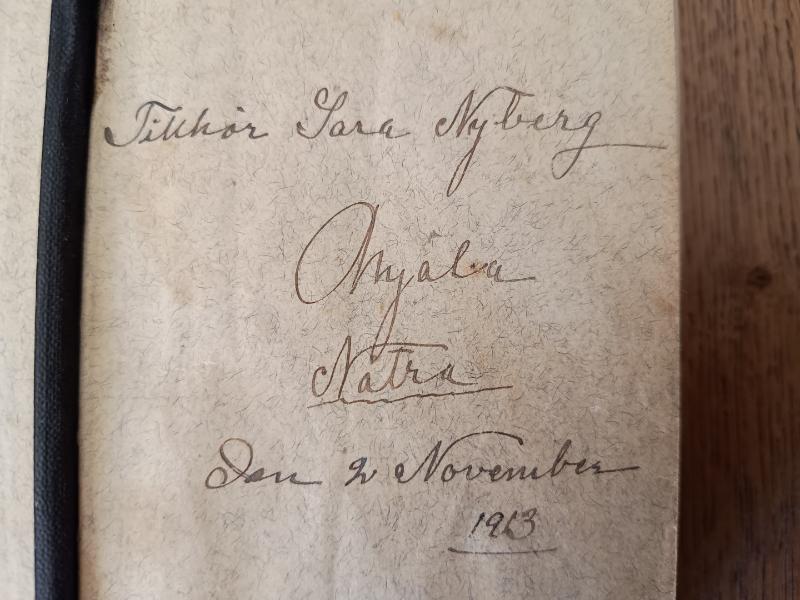 Tillhör Sara Nyberg
Mjäla
Nätra
Den 2 November
1913